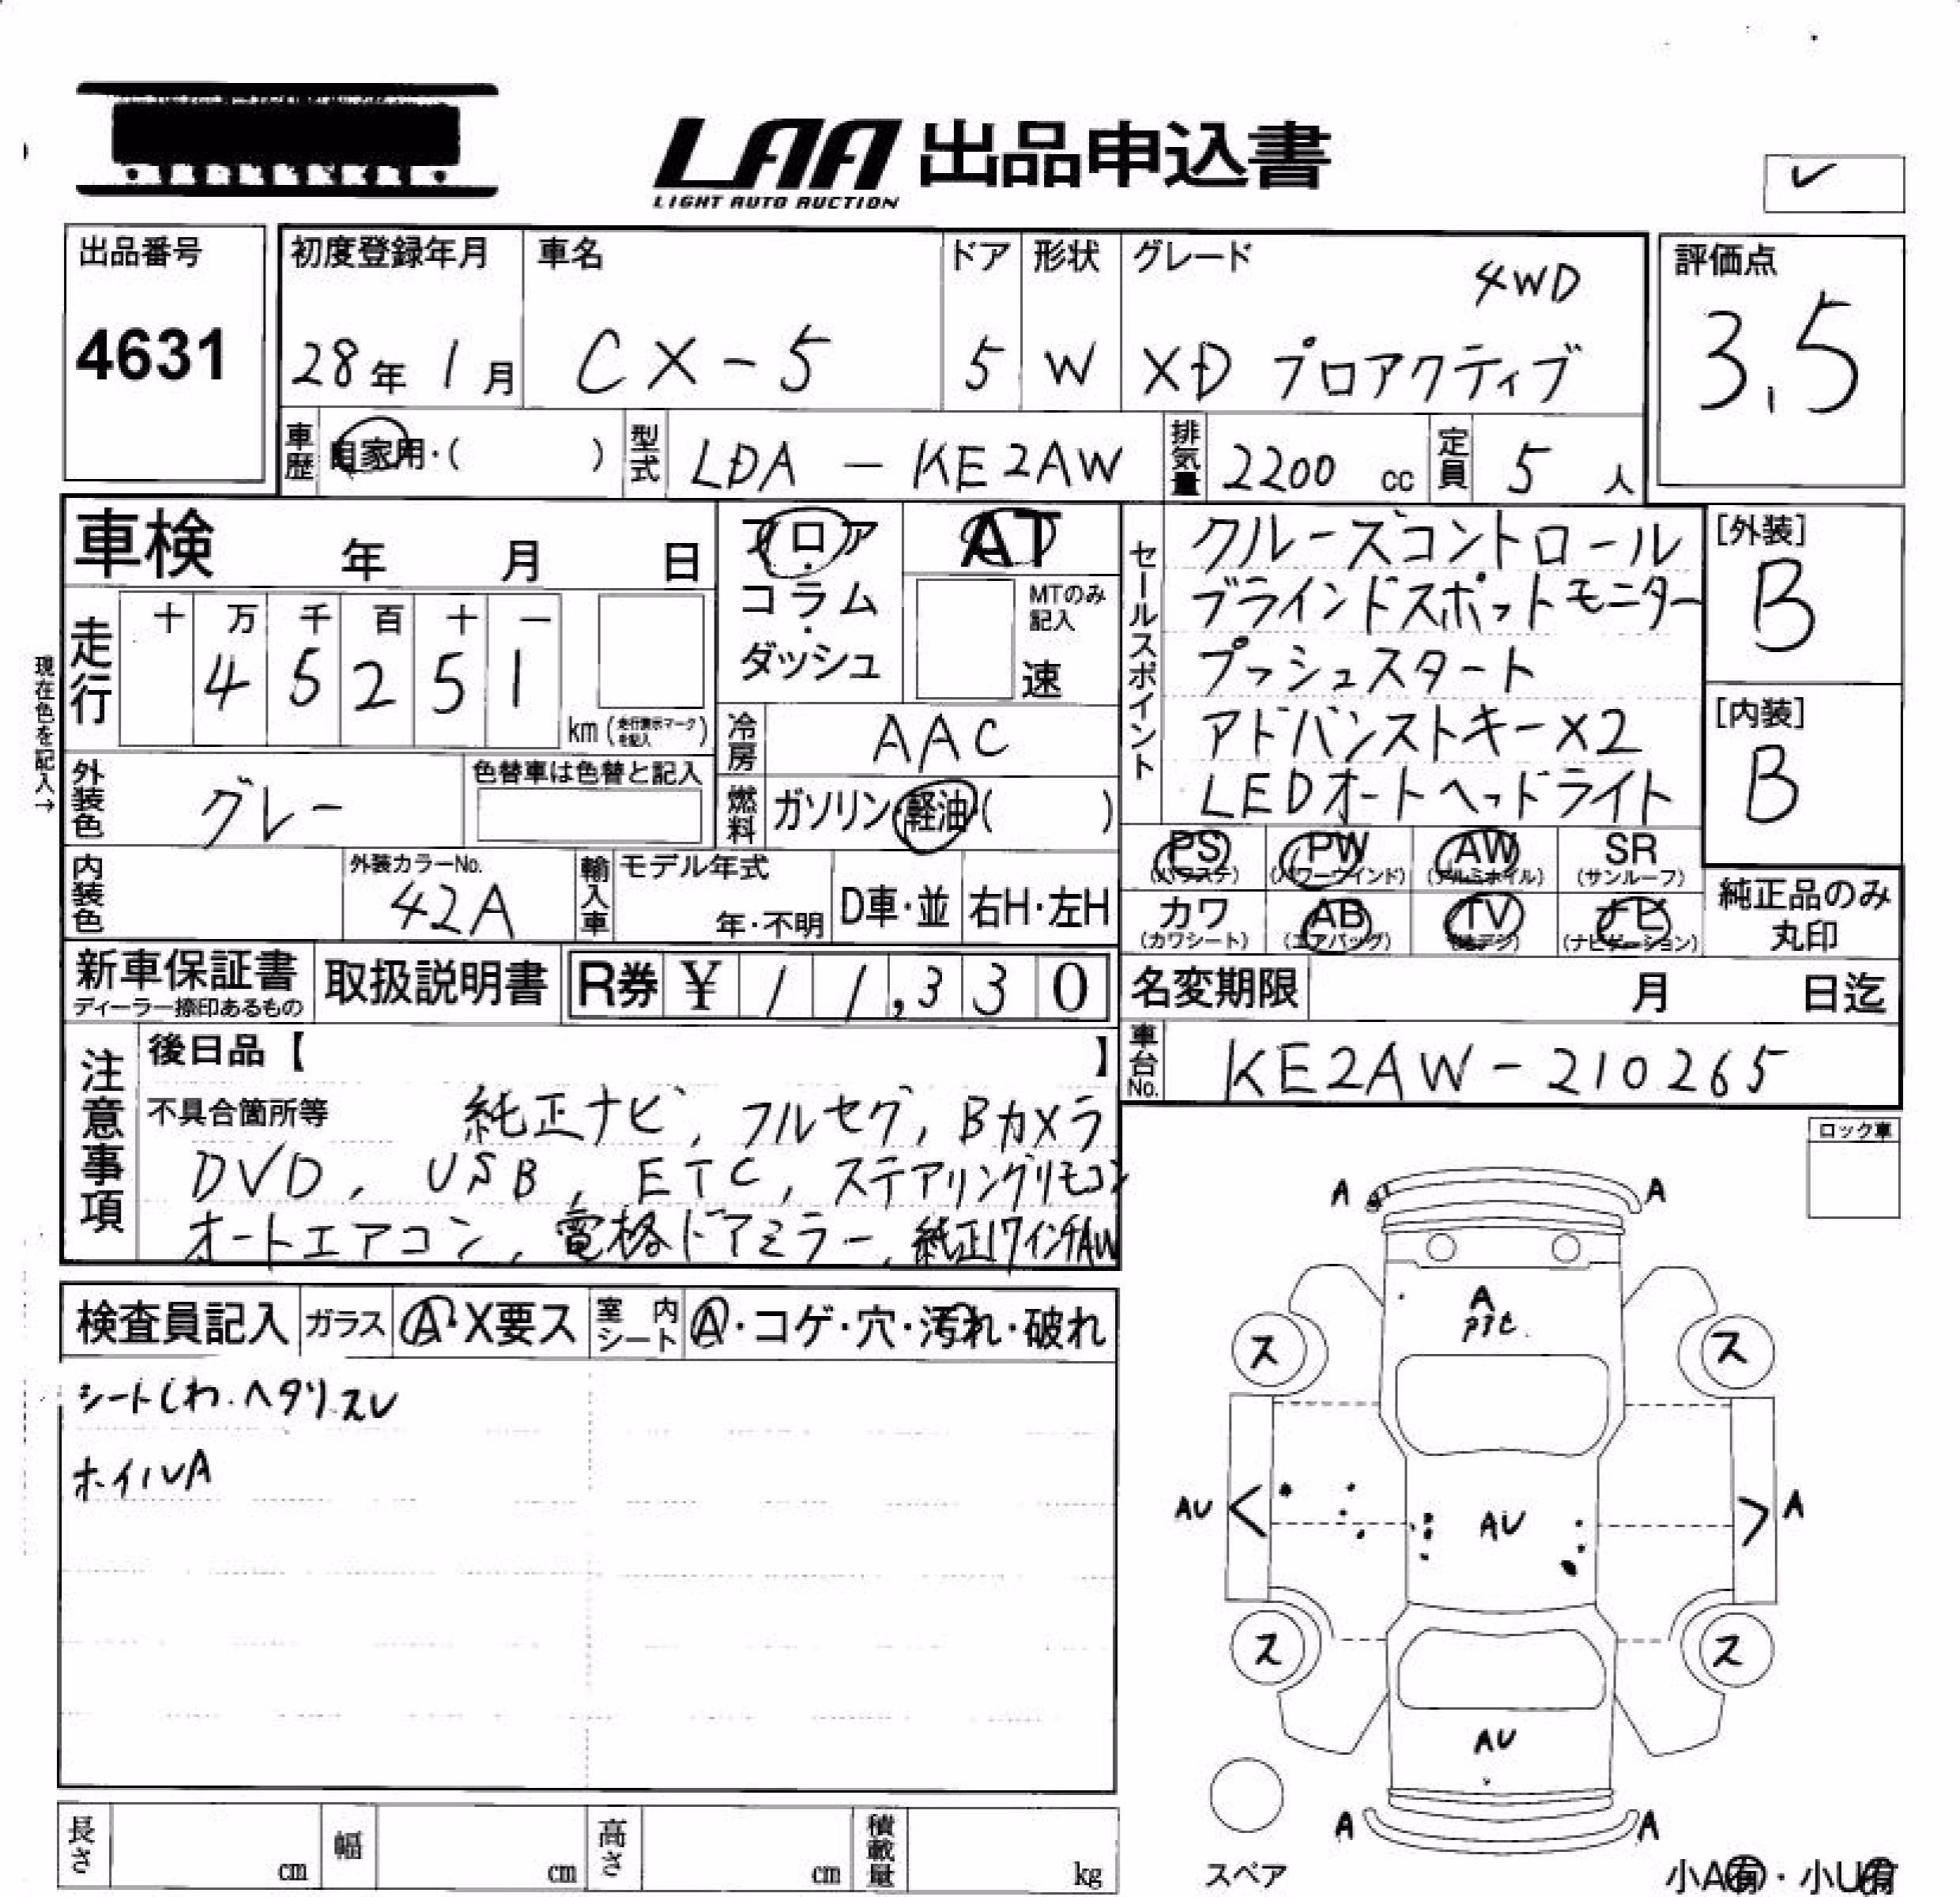 LAA 出品申込書
LIGHT AUTO AUCTION
✓
出品番号
4631
初度登録年月
28年 1月
車名
CX-5
ドア
5
形状
W
グレード
4WD
XD プロアクティブ
評価点
3.5
車歴
自家用・( )
型式
LDA - KE2AW
排気量
2200 cc
定員
5 人
車検 年 月 日
フロア・コラム・ダッシュ
AT
MTのみ記入
速
セールスポイント
クルーズコントロール
ブラインドスポットモニター
プッシュスタート
アドバンストキー×2
LEDオートヘッドライト
[外装]
B
[内装]
B
現在色を記入→
走行
十 万 千 百 十 一
4 5 2 5 1
km (走行表示マークを記入)
冷房
AAC
外装色
グレー
色替車は色替と記入
燃料
ガソリン・軽油・( )
PS (パワステ)
PW (パワーウインド)
AW (アルミホイル)
SR (サンルーフ)
内装色
外装カラーNo.
42A
輸入車
モデル年式
年・不明
D車・並
右H・左H
カワ (カワシート)
AB (エアバッグ)
TV (地デジ)
ナビ (ナビゲーション)
純正品のみ丸印
新車保証書
ディーラー捺印あるもの
取扱説明書
R券 ¥ 11,330
名変期限 月 日迄
車台No.
KE2AW-210265
注意事項
後日品【 】
不具合箇所等
純正ナビ, フルセグ, Bカメラ
DVD, USB, ETC, ステアリングリモコン
オートエアコン, 電格ドアミラー, 純正17インチAW
ロック車
検査員記入
ガラス
A・X要ス
室内シート
A・コゲ・穴・汚れ・破れ
シートしわ・ヘタリスレ
ホイルA
A A
A
ス ス
AU < AU > A
ス ス
AU
A A
スペア
小A有・小U有
長さ cm
幅 cm
高さ cm
積載量 kg